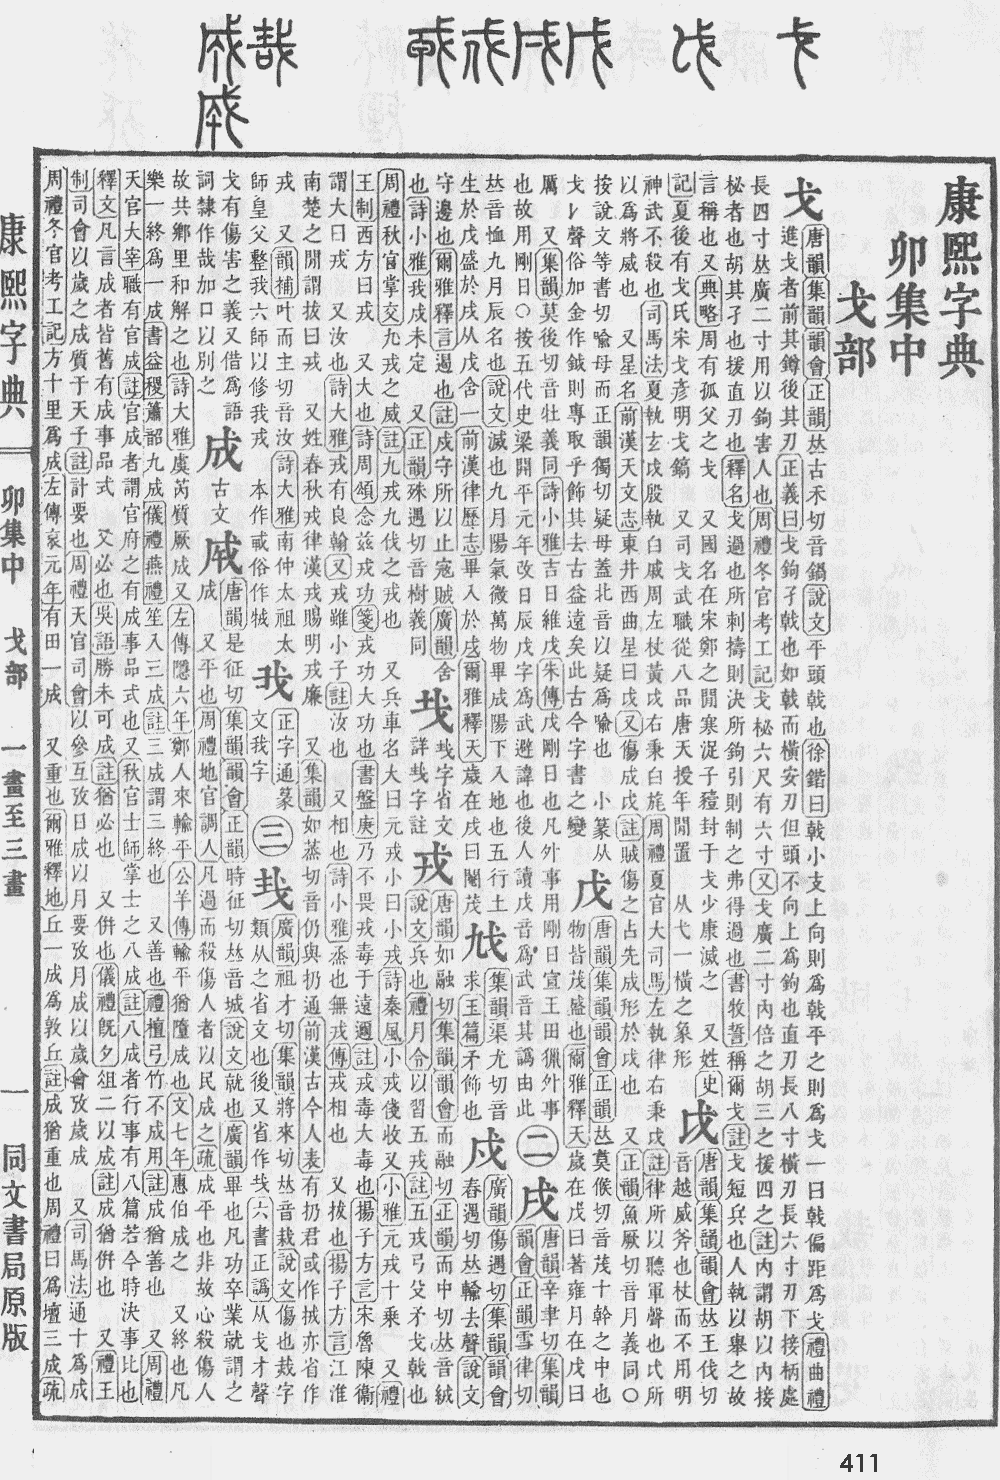 康熙字典
卯集中
戈部
戈 唐韻集韻韻會正韻𠀤古禾切音鍋說文平頭戟也徐鍇曰戟小支上向則爲戟平之則爲戈一曰戟偏距爲戈禮曲禮
進戈者前其鐏後其刃正義曰戈鉤孑戟也如戟而橫安刃但頭不向上爲鉤也直刃長八寸橫刃長六寸刃下接柄處
長四寸𠀤廣二寸用以鉤害人也周禮冬官考工記戈柲六尺有六寸又戈廣二寸內倍之胡三之援四之註內謂胡以內接
柲者也胡其孑也援直刃也釋名戈過也所刺擣則決所鉤引則制之弗得過也書牧誓稱爾戈註戈短兵也人執以舉之故
言稱也又典略周有孤父之戈 又國名在宋鄭之閒寒浞子豷封于戈少康滅之 又姓史 戉 唐韻集韻韻會𠀤王伐切
記夏後有戈氏宋戈彥明戈鎬 又司戈武職從八品唐天授年閒置 从弋一橫之象形 音越威斧也杖而不用明
神武不殺也司馬法夏執玄戉殷執白戚周左杖黃戉右秉白旄周禮夏官大司馬左執律右秉戉註律所以聽軍聲也戉所
以爲將威也 又星名前漢天文志東井西曲星曰戉又傷成戉註賊傷之占先成形於戉也 又正韻魚厥切音月義同○
按說文等書切喻母而正韻獨切疑母蓋北音以疑爲喻也 小篆从 戊 唐韻集韻韻會正韻𠀤莫候切音茂十幹之中也
戈𠄌聲俗加金作鉞則專取乎飾其去古益遠矣此古今字書之變 物皆茂盛也爾雅釋天歲在戊曰著雍月在戊曰
厲又集韻莫後切音牡義同詩小雅吉日維戊朱傳戊剛日也凡外事用剛日宣王田獵外事 二 戌 唐韻辛聿切集韻
也故用剛日○按五代史梁開平元年改日辰戊字爲武避諱也後人讀戊音爲武音其譌由此 韻會正韻雪律切
𠀤音恤九月辰名也說文滅也九月陽氣微萬物畢成陽下入地也五行土 集韻渠尤切音 戍 廣韻傷遇切集韻韻會
生於戊盛於戌从戊含一前漢律歷志畢入於戌爾雅釋天歲在戌曰閹茂 求玉篇矛飾也 春遇切𠀤輸去聲說文
守邊也爾雅釋言遏也註戍守所以止寇賊廣韻舍 𢦏字省文 戎 唐韻如融切集韻韻會而融切正韻而中切𠀤音絨
也詩小雅我戍未定 又正韻殊遇切音樹義同 詳𢦏字註 說文兵也禮月令以習五戎註五戎弓殳矛戈戟也
周禮秋官掌交九戎之威註九戎九伐之戎也 又兵車名大曰元戎小曰小戎詩秦風小戎俴收又小雅元戎十乘 又禮
王制西方曰戎 又大也詩周頌念茲戎功箋戎功大功也書盤庚乃不畏戎毒于遠邇註戎毒大毒也揚子方言宋魯陳衞
謂大曰戎 又汝也詩大雅戎有良翰又戎雖小子註汝也 又相也詩小雅烝也無戎傳戎相也 又拔也揚子方言江淮
南楚之閒謂拔曰戎 又姓春秋戎律漢戎賜明戎廉 又集韻如蒸切音仍與扔通前漢古今人表有扔君或作㧌亦省作
戎 又韻補叶而主切音汝詩大雅南仲太祖太 正字通篆 三 𢦏 廣韻祖才切集韻將來切𠀤音哉說文傷也
師皇父整我六師以修我戎 文我字 類从之省文也後又省作 六書正譌从戈才聲
戈有傷害之義又借爲語 成 古文 唐韻是征切集韻韻會正韻時征切𠀤音城說文就也廣韻畢也凡功卒業就謂之
詞隸作哉加口以別之 成 又平也周禮地官調人凡過而殺傷人者以民成之疏成平也非故心殺傷人
故共鄉里和解之也詩大雅虞芮質厥成又左傳隱六年鄭人來輸平公羊傳輸平猶墮成也文七年惠伯成之 又終也凡
樂一終爲一成書益稷簫韶九成儀禮燕禮笙入三成註三成謂三終也 又善也禮檀弓竹不成用註成猶善也 又周禮
天官大宰職有官成註官成者謂官府之有成事品式也又秋官士師掌士之八成註八成者行事有八篇若今時決事比也
釋文凡言成者皆舊有成事品式 又必也吳語勝未可成註猶必也 又併也儀禮旣夕俎二以成註成猶併也 又禮王
制司會以歲之成質于天子註計要也周禮天官司會以參互攷日成以月要攷月成以歲會攷歲成 又司馬法通十爲成
周禮冬官考工記方十里爲成左傳哀元年有田一成 又重也爾雅釋地丘一成爲敦丘註成猶重也周禮曰爲壇三成疏
康熙字典 卯集中 戈部 一畫至三畫 一 同文書局原版
411